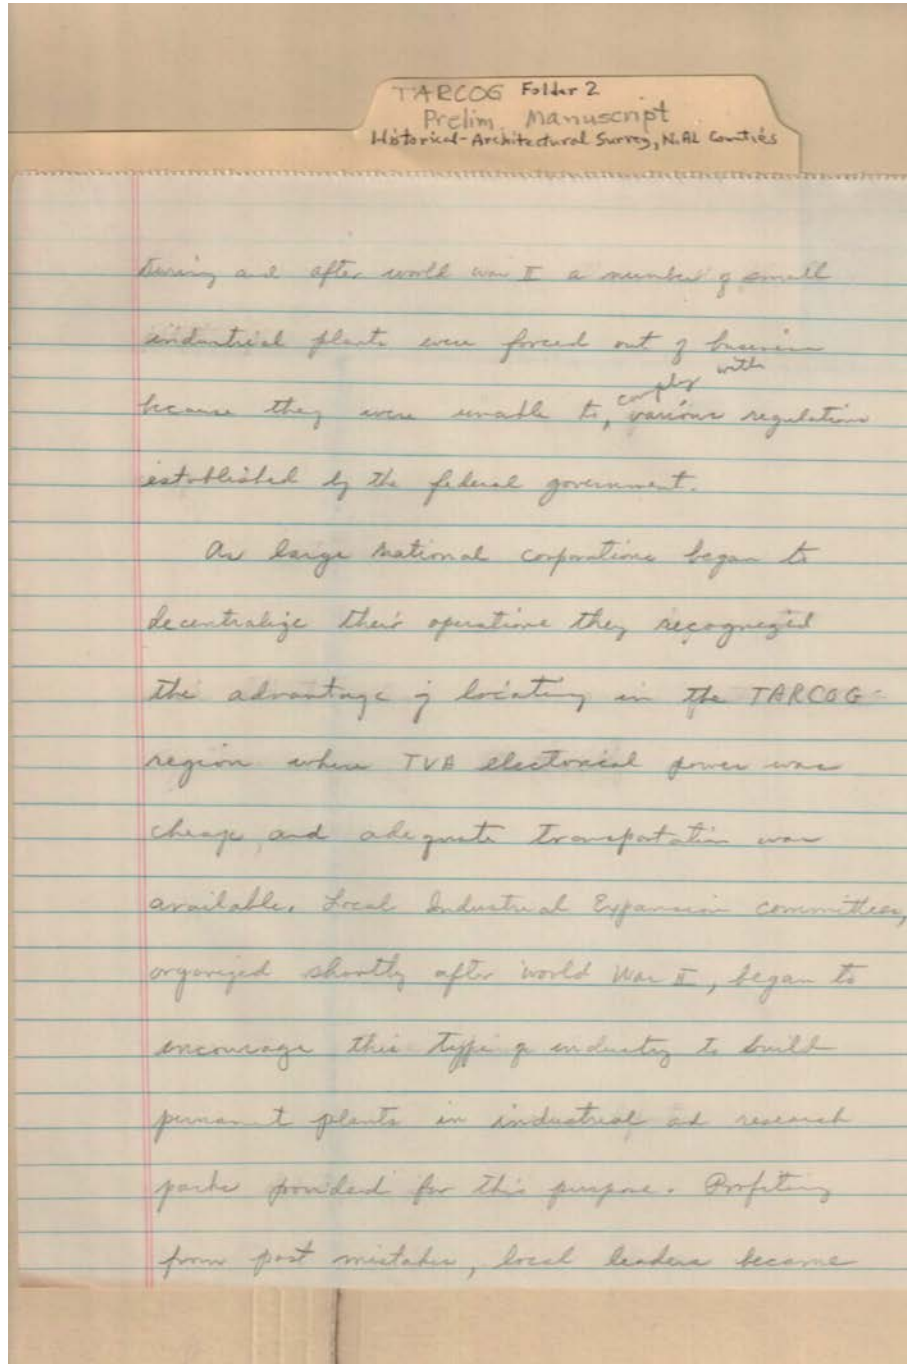 TARCOG Folder 2
Prelim. Manuscript
Historical-Architectural Survey, N. AL Counties
During and after world war II a number of small
industrial plants were forced out of business
comply with
because they were unable to, various regulation
established by the federal government.
As large national corporations began to
decentralize their operations they recognezed
the advantage of locating in the TARCOG
region where TVA electorical power was
cheap, and adequate transportation was
available. Local Industrial Expansion committees,
organized shortly after world War II, began to
encourage this type of industry to build
permanent plants in industrial and research
parks provided for this purpose. Profiting
from past mistakes, local leaders became